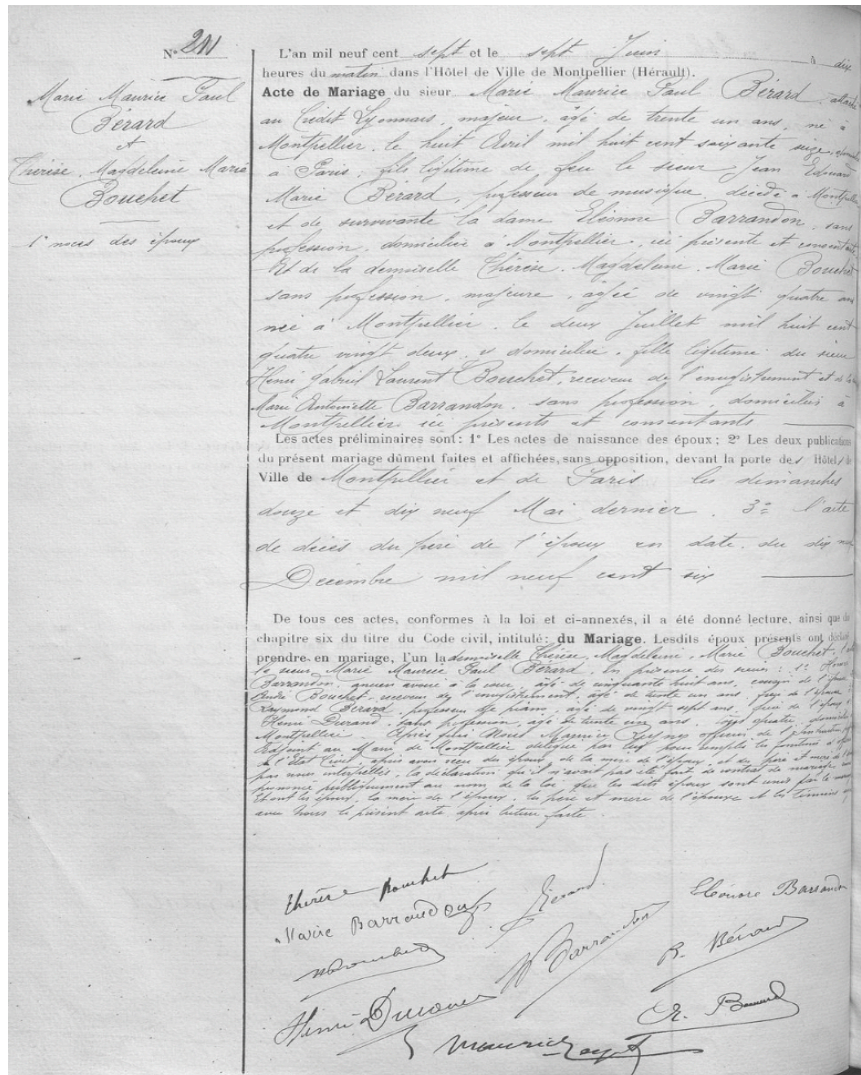 N° 211
Marie Maurice Paul
Bérard
et
Thérèse Magdeleine Marie
Bouchet
1es noces des époux
L'an mil neuf cent sept et le sept Juin à dix
heures du matin dans l'Hôtel de Ville de Montpellier (Hérault).
Acte de Mariage du sieur Marie Maurice Paul Bérard, attaché
au Crédit Lyonnais, majeur, âgé de trente un ans, né à
Montpellier, le huit Avril mil huit cent soixante seize, domicilié
à Paris, fils légitime de feu le sieur Jean Edouard
Marie Bérard, professeur de musique, décédé à Montpellier
et de survivante la dame Eléonore Barrandon, sans
profession, domiciliée à Montpellier, ici présente et consentante
Et de la demoiselle Thérèse, Magdeleine, Marie Bouchet
sans profession, majeure, âgée de vingt quatre ans
née à Montpellier, le deux Juillet mil huit cent
quatre vingt deux, y domiciliée, fille légitime du sieur
Henri Gabriel Laurent Bouchet, receveur de l'enregistrement et de la
Marie Antoinette Barrandon, sans profession, domiciliés à
Montpellier ici présents et consentants
Les actes préliminaires sont : 1° Les actes de naissance des époux ; 2° Les deux publications
du présent mariage dûment faites et affichées, sans opposition, devant la porte des Hôtels de
Ville de Montpellier et de Paris les dimanches
douze et dix neuf Mai dernier. 3° l'acte
de décès du père de l'époux en date du dix
Décembre mil neuf cent six
De tous ces actes, conformes à la loi et ci-annexés, il a été donné lecture, ainsi que du
chapitre six du titre du Code civil, intitulé : du Mariage. Lesdits époux présents ont déclaré
prendre en mariage, l'un la demoiselle Thérèse, Magdeleine, Marie Bouchet,
le sieur Marie Maurice Paul Bérard, en présence des sieurs : 1°
Barrandon, ancien avoué à la cour, âgé de cinquante huit ans, cousin de
André Bouchet, receveur de l'enregistrement, âgé de trente un ans, frère de l'épouse
Raymond Bérard, professeur de piano, âgé de vingt sept ans, frère de l'époux
Henri Durand, sans profession, âgé de trente un ans, tous quatre domiciliés
Montpellier. Après quoi Nous Maurice officier de l'instruction
Adjoint au Maire de Montpellier délégué par lui pour remplir les fonctions
de l'Etat Civil, après avoir reçu des époux, de la mère de l'époux, et des père et mère de
par nous interpellés, la déclaration qu'il n'avait pas été fait de contrat de mariage, avons
prononcé publiquement au nom de la loi, que les dits époux sont unis par le mariage
et ont les époux, la mère de l'époux, les père et mère de l'épouse et les témoins
avec Nous le présent acte après lecture faite.
Thérèse Bouchet
Bérard
Eléonore Barrandon
Marie Barrandon
Barrandon
R. Bérard
Henri Durand
Maurice